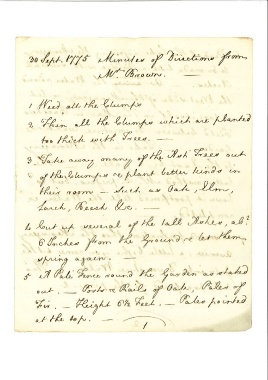 30 Sept. 1775 Minutes of Directions from
Mr. Brown. —
1 Weed all the Clumps
2 Thin all the Clumps which are planted
too thick with Trees. —
3 Take away many of the Ash Trees out
of the Clumps & plant better kinds in
their room — Such as Oak, Elms,
Larch, Beech &c. —
4 Cut up several of the tall Ashes, abt.
6 Inches from the Ground & let them
spring again. —
5 A Pale Fence round the Garden as stated
out. — Posts & Rails of Oak, Pales of
Fir. — Height 6½ Feet. — Pales pointed
at the top. —
1